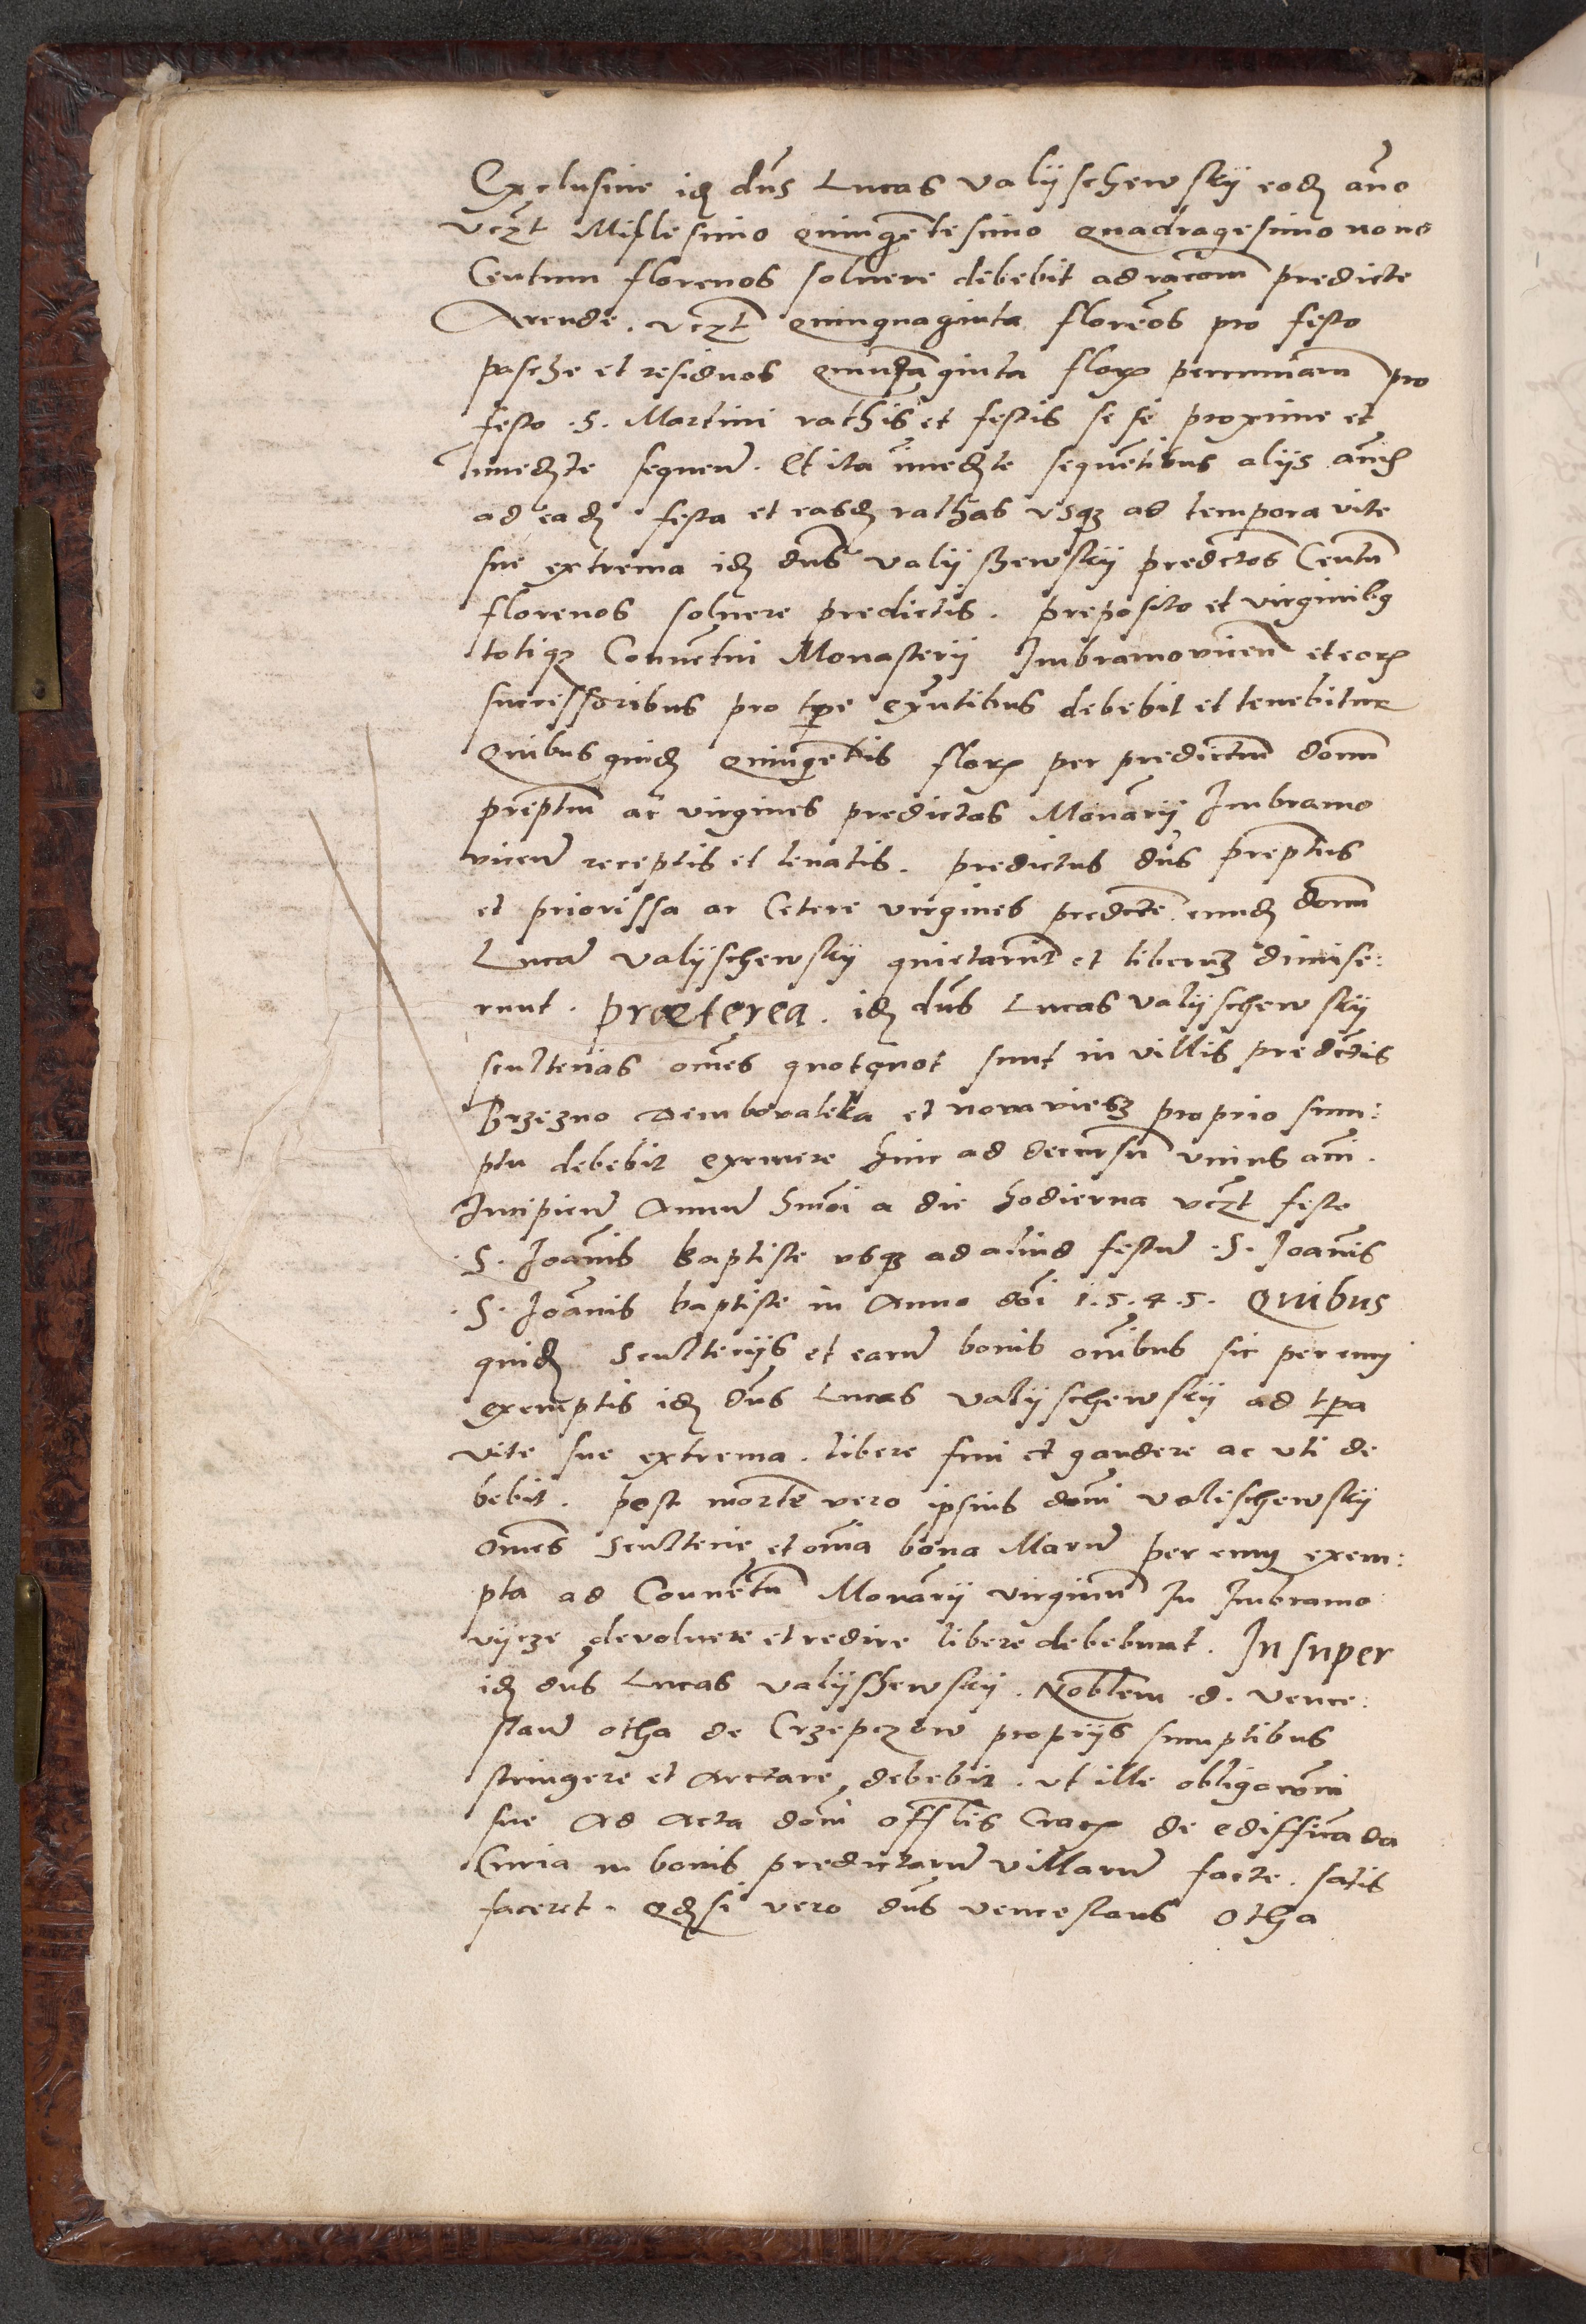 Exclusiue idẽ dñs Lucas Valijschewskij eodẽ año
vczt Millesimo quingẽtesimo quadragesimo nono
Centum florenos soluere debebit ad rãcom̃ predicte
Arende. vczt quinquaginta florẽos pro festo
pasche et residuos quinq̃ginta florꝝ pecuniarũ pro
festo .S. Martini rathis et festis se se proxime et
imedẽte sequeñ. Et ita imedẽte sequẽtibus alijs añis
ad eadẽ festa et easdẽ rathas vsqꝫ ad tempora vite
sue extrema idẽ dñs Valijschewskij predc̃tos Centũ
florenos soluere predictis. preposito et virginibꝰ
totiqꝫ Conuẽtui Monasterij Imbramouiceñ et eorꝝ
successoribus pro tpe exñtibus debebit et tenebitur
Quibusquidẽ quingẽtis florꝝ per predictum domũ
preptũ ac virgines predictas Monãrij Imbramo
uiceñ receptis et leuatis. predictus dñs preptus
et priorissa ac Cetere virgines predcte eundẽ domũ
Lucã Valijschewskij quietarũt et liberuꝫ dimise:
runt. præterea. idẽ dñs Lucas Valijschewskij
scultecias omẽs quotquot sunt in villis predc̃tis
Brzezno Dembovaleka et nova viesz proprio sum:
ptu debebit exemere hinc ad decursũ vnius añi.
Incipieñ Annũ hmõi a die hodierna vczt festo
.S. Joañis baptiste vsqꝫ ad aliud festũ .S. Joañis
.S. Joañis baptiste in Anno doĩ 1.5.4.5. Quibus
quidẽ Scultecijs et earũ bonis om̃ibus sic per eum
exemptis idẽ dñs Lucas Valijschewskij ad tpa
vite sue extrema. libere frui et gaudere ac vti de
bebit. post mortẽ vero ipsius domi Valischewskij
omẽs Scultecie et om̃ia bona illarũ per eum exem:
pta ad Conuẽtũ Monãrij virginũ In Imbramo
vijcze deuoluere et redire libere debebunt. In super
idẽ dñs Lucas Valijschewskij. Noblem .d. vence:
slaũ otha de Crzepczow proprijs sumptibus
stringere et Arctare debebit. vt ille obligacõni
sue Ad Acta domi offlis Cracꝫ de edifficãda
Curia in bonis predictarũ villarũ facte. satis
faceret. Qdsi vero dñs venceslaus otha